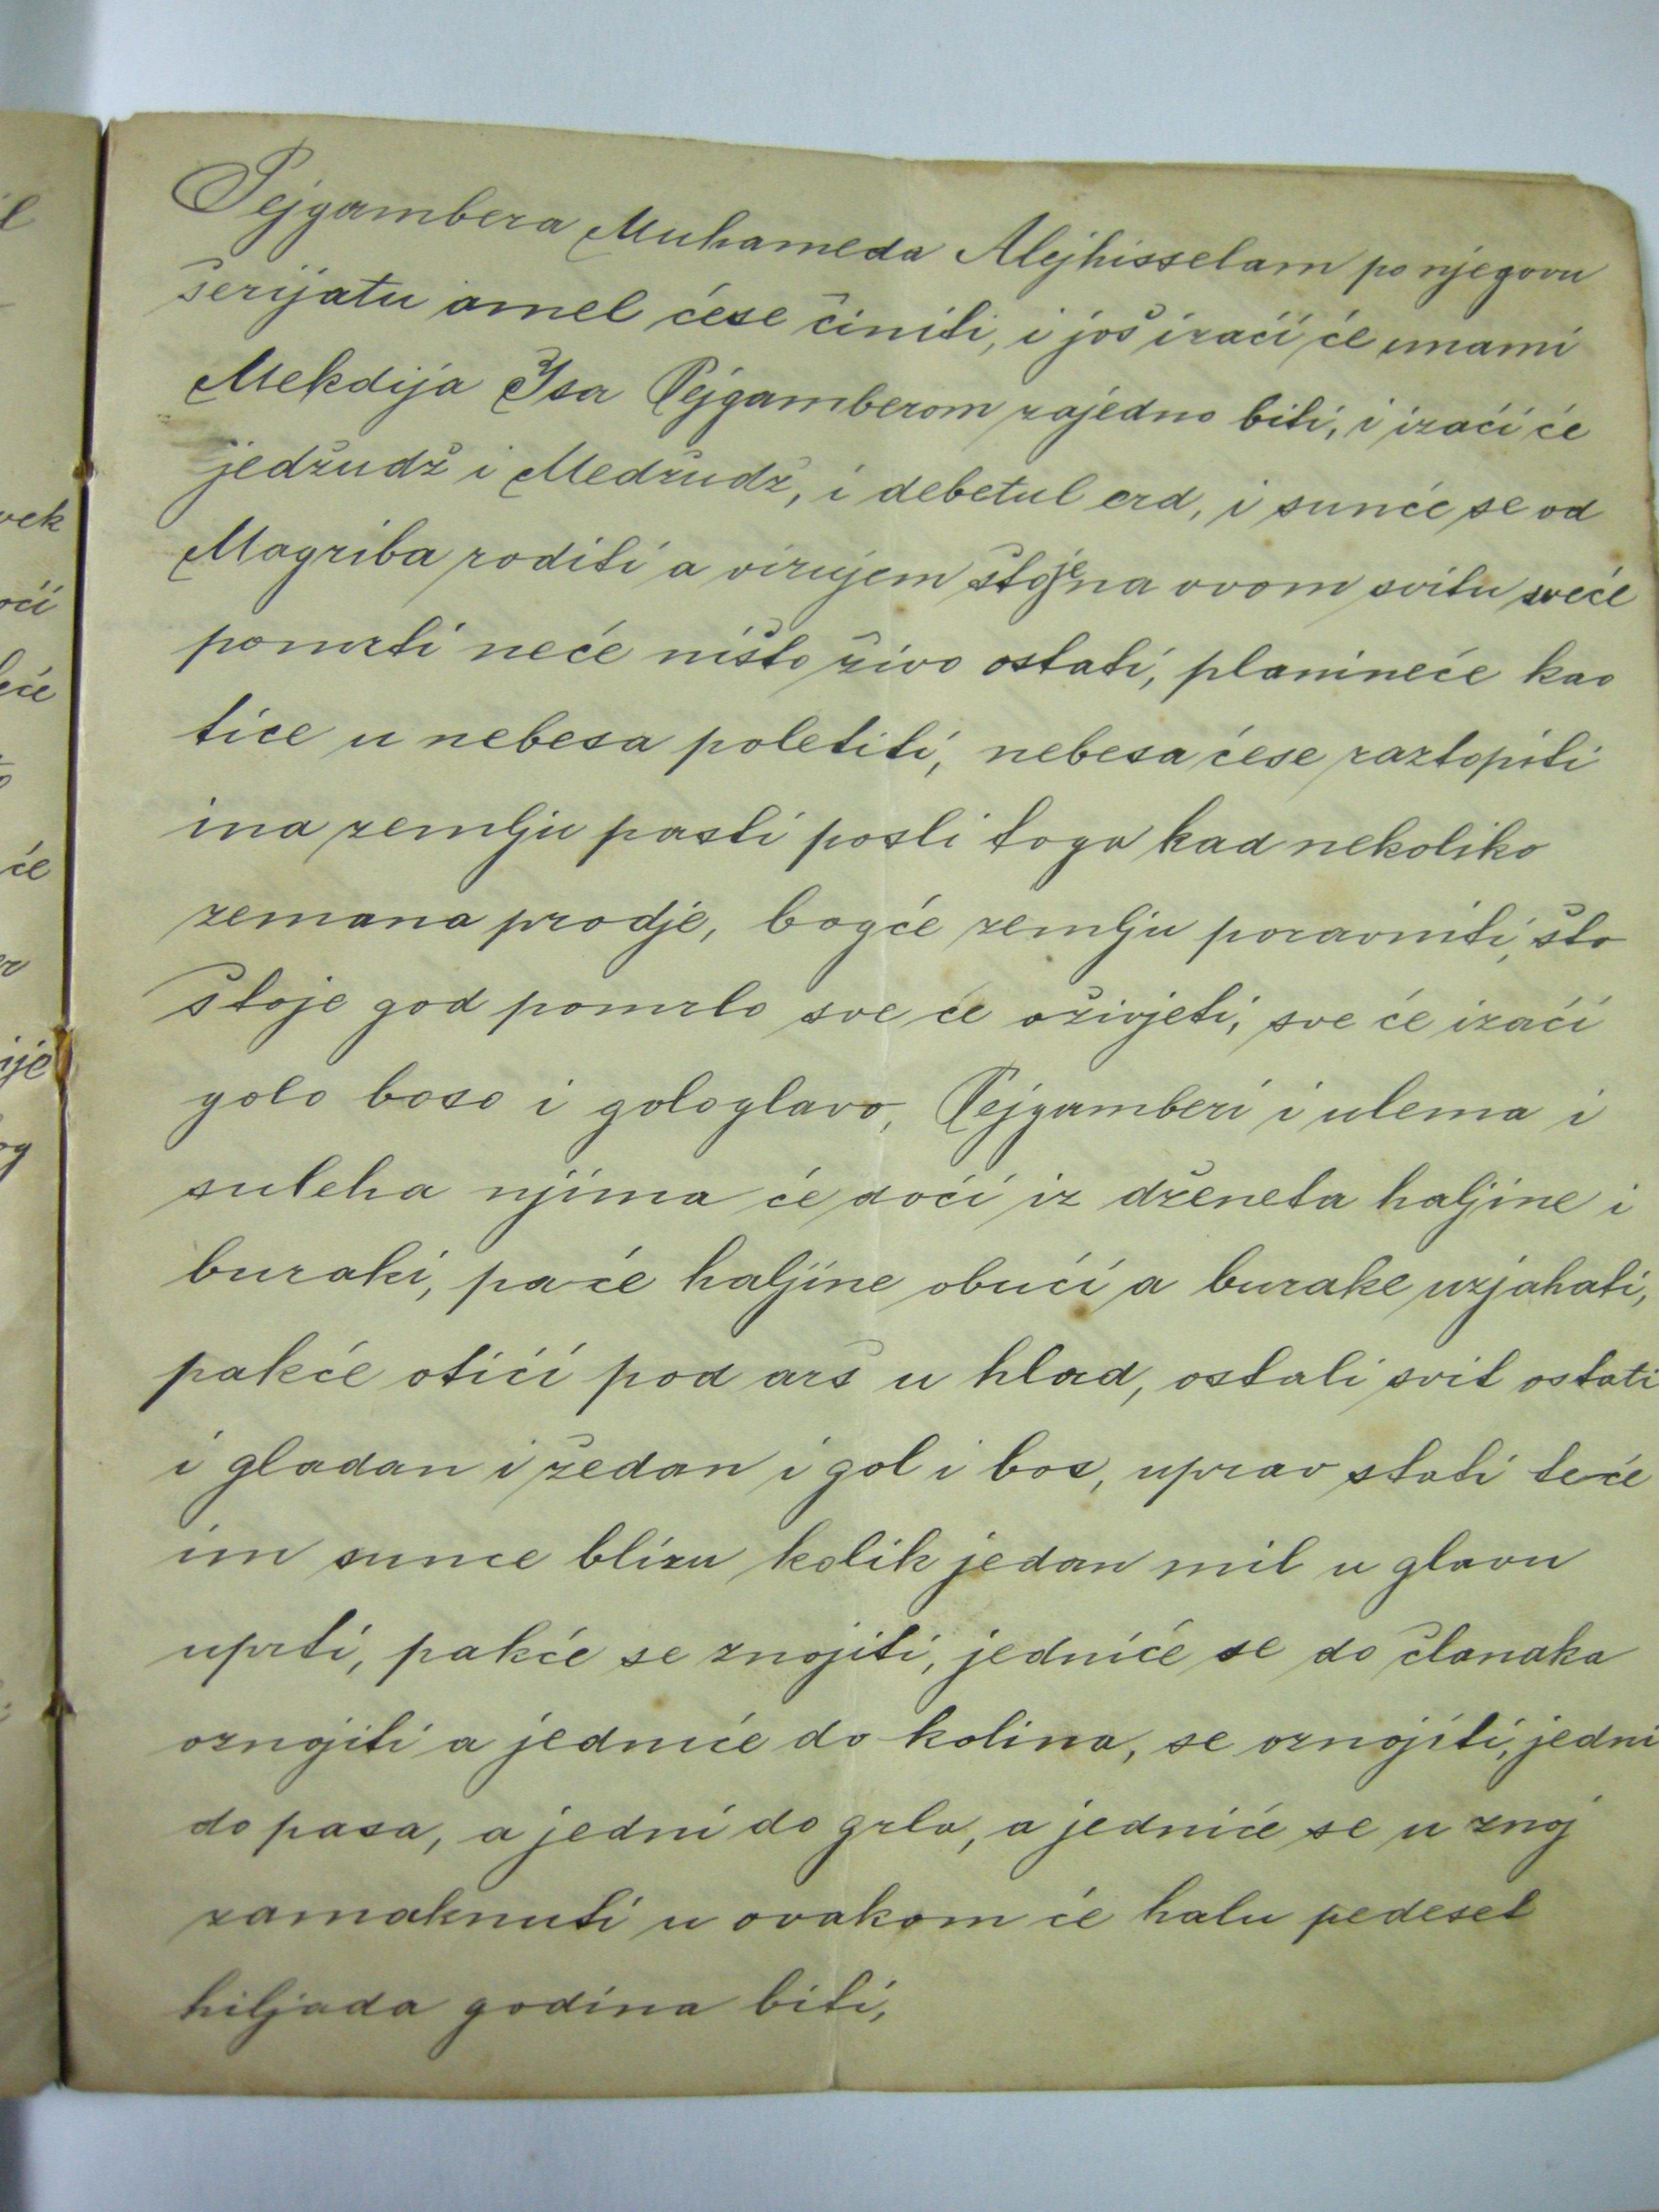 Pejgambera Muhameda Alejhisselam po njegovu
šerijatu amel ćese činiti, i još izaći će imami
Mekdija Isa Pejgamberom zajedno biti, i izaći će
jedžudž i Medžudž, i debetul erd, i sunće se od
Magriba roditi a virujem štoje na ovom svitu sveće
pomrti neće ništo živo ostati, planineće kao
tice u nebesa poletiti, nebesa ćese raztopiti
ina zemlju pasti posli toga kad nekoliko
zemana prodje, bogće zemlju poravniti, što
štoje god pomrlo sve će oživjeti, sve će izaći
golo boso i gologlavo, Pejgamberi i ulema i
suleha njima će doći iz dženeta haljine i
buraki, pa će haljine obući a burake uzjahati,
pakće otići pod arš u hlad, ostali svit ostati
i gladan i žedan i gol i bos, uprav stati teće
im sunce blizu kolik jedan mil u glavu
uprti, pakće se znojiti, jedniće se do članaka
oznojiti a jedniće do kolina, se oznojiti, jedni
do pasa, a jedni do grla, a jedniće se u znoj
zamaknuti u ovakom će halu pedeset
hiljada godina biti,